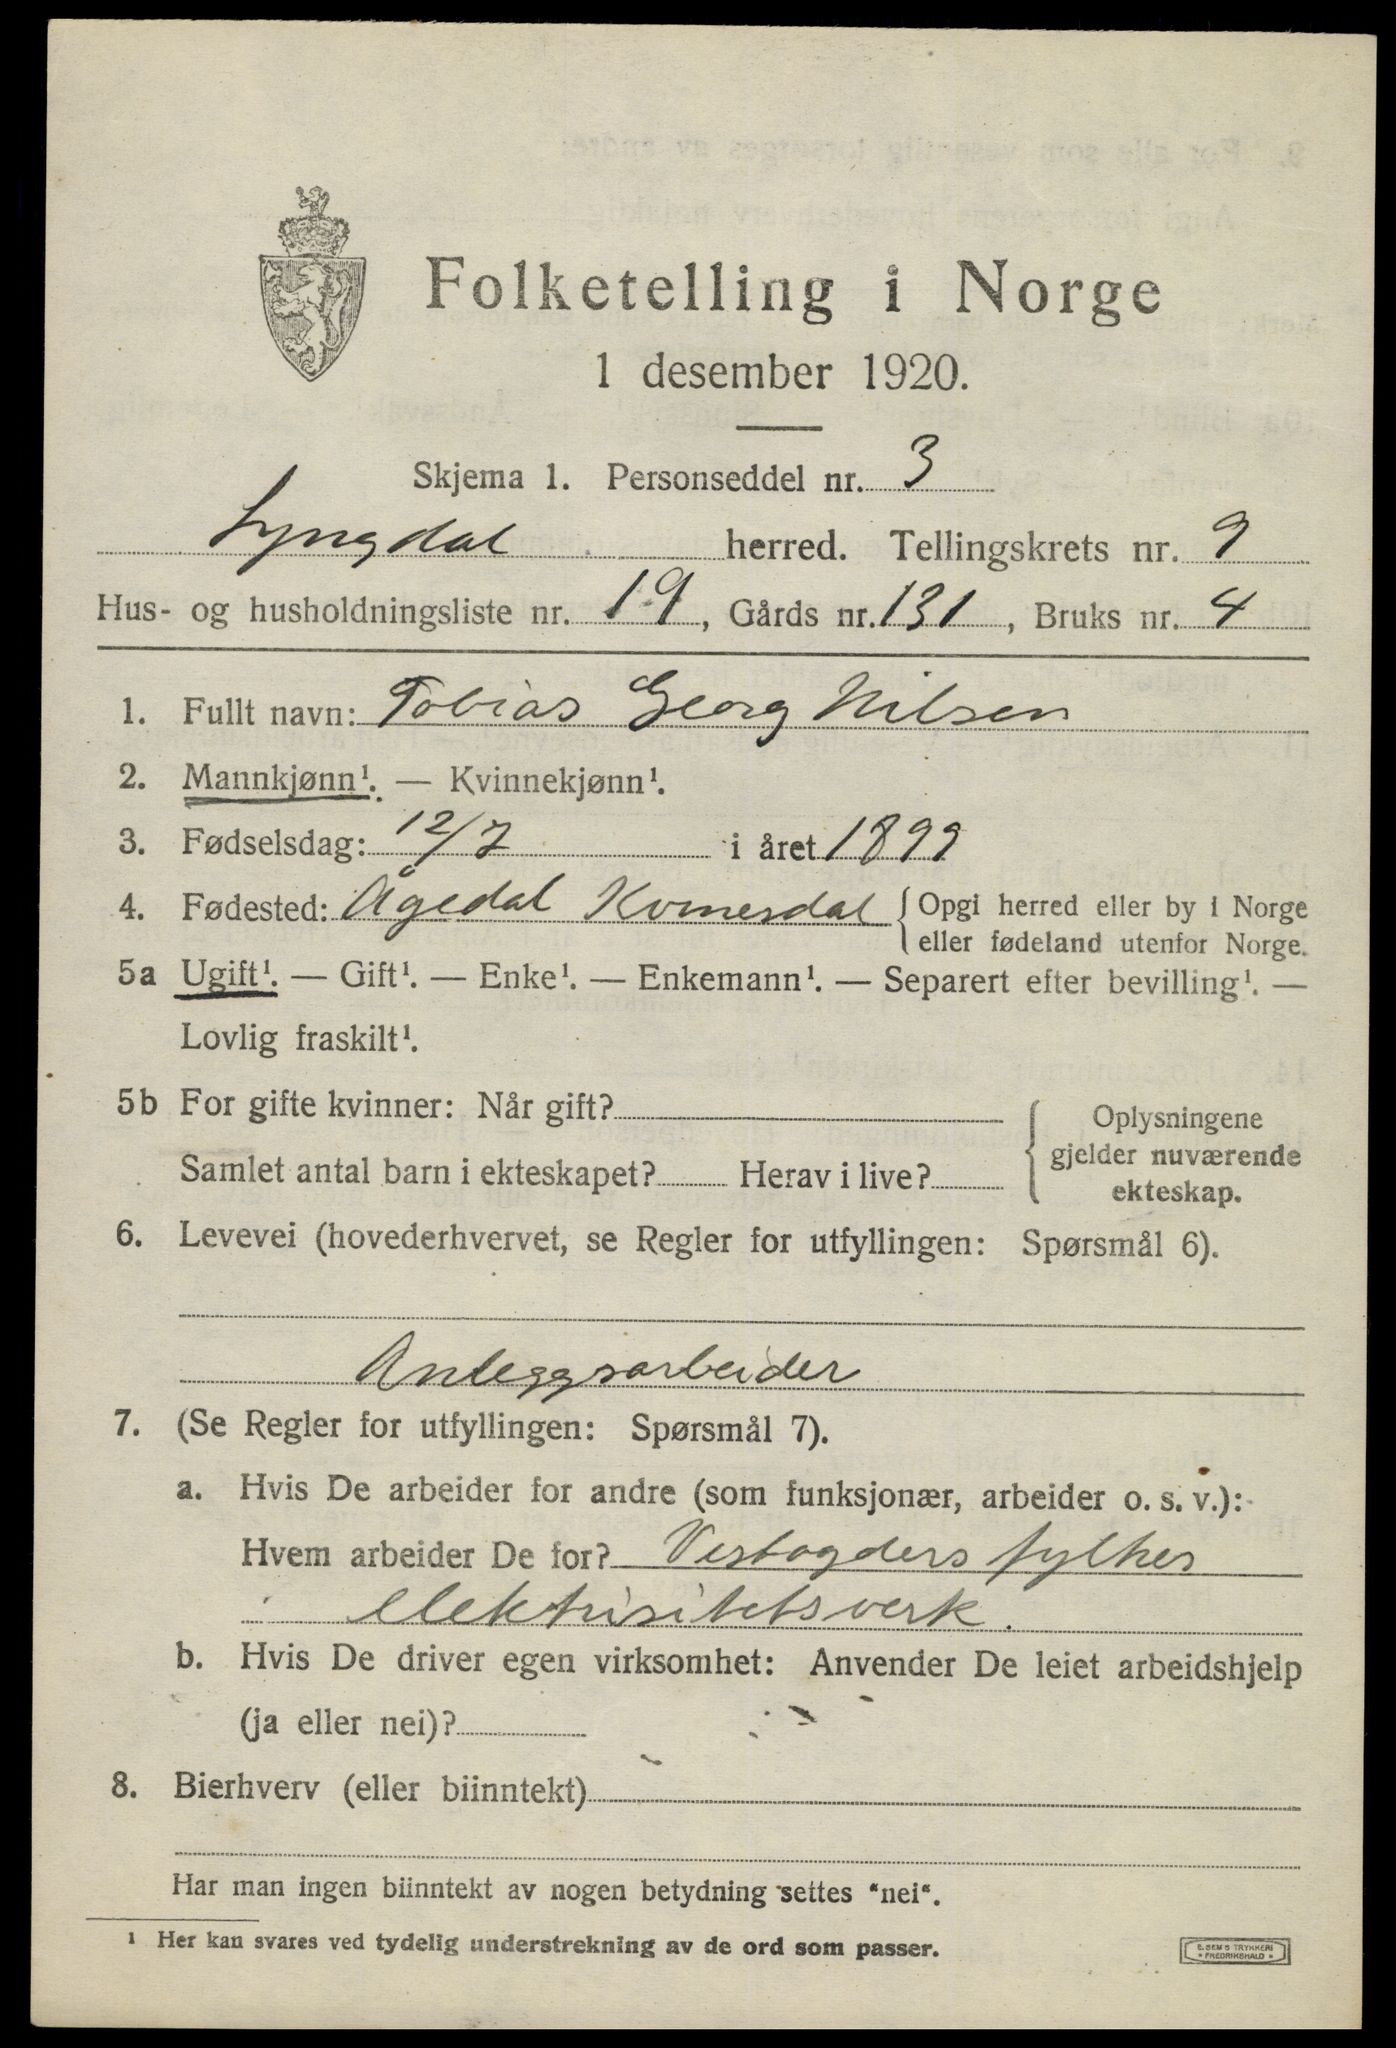 Folketelling i Norge
1 desember 1920.
Skjema 1. Personseddel nr. 3
Lyngdal herred. Tellingskrets nr. 9
Hus- og husholdningsliste nr. 19, Gårds nr. 131, Bruks nr. 4
1. Fullt navn: Tobias Georg Nilsen
2. Mannkjønn¹. — Kvinnekjønn¹.
3. Fødselsdag: 12/7 i året 1899
4. Fødested: Ågedal Kvinesdal { Opgi herred eller by i Norge
eller fødeland utenfor Norge.
5a Ugift¹. — Gift¹. — Enke¹. — Enkemann¹. — Separert efter bevilling¹. —
Lovlig fraskilt¹.
5b For gifte kvinner: Når gift?
Samlet antal barn i ekteskapet? Herav i live?
{ Oplysningene
gjelder nuværende
ekteskap.
6. Levevei (hovederhvervet, se Regler for utfyllingen: Spørsmål 6).
Anleggsarbeider
7. (Se Regler for utfyllingen: Spørsmål 7).
a. Hvis De arbeider for andre (som funksjonær, arbeider o. s. v.):
Hvem arbeider De for? Vestagders fylkes
elektrisitetsverk.
b. Hvis De driver egen virksomhet: Anvender De leiet arbeidshjelp
(ja eller nei)?
8. Bierhverv (eller biinntekt)
Har man ingen biinntekt av nogen betydning settes "nei".
¹ Her kan svares ved tydelig understrekning av de ord som passer.
E. SEM'S TRYKKERI
* FREDRIKSHALD *